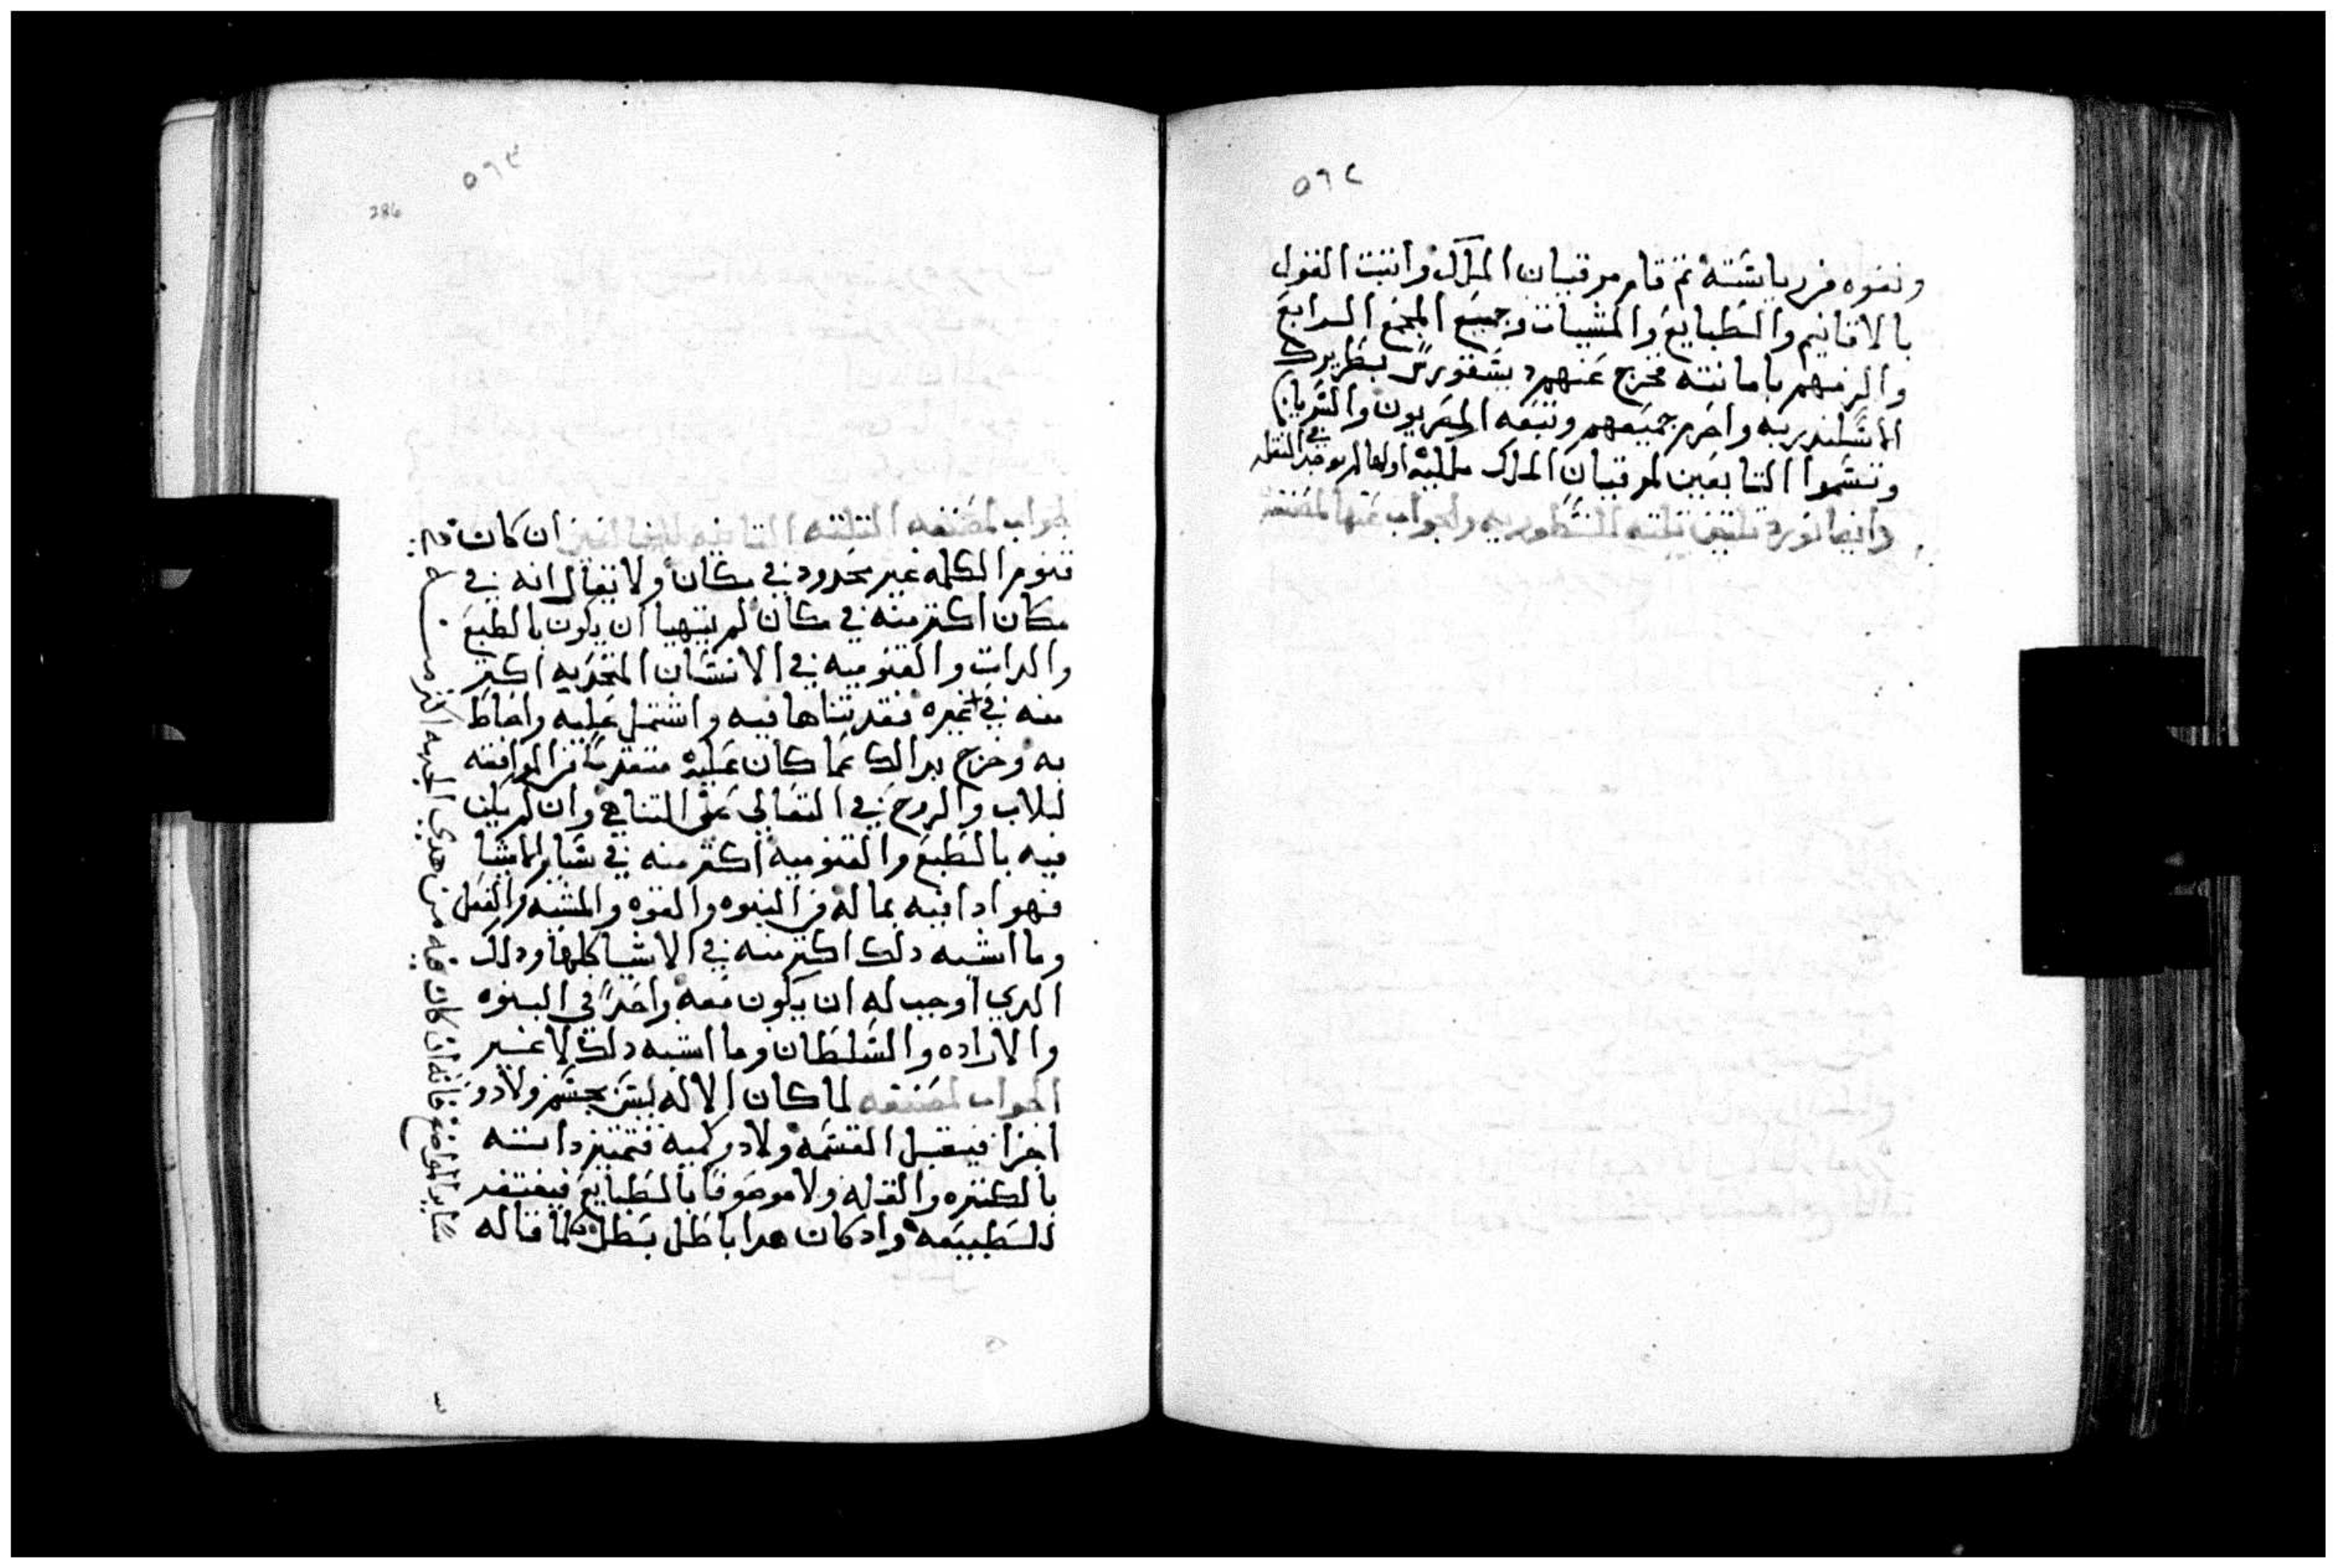 ٥٦٢
ونفوه من رياسته ثم قام مرقيان الملك واثبت القول
بالاقانيم والطبايع والمشيات وجميع المجمع الرابع
والزمهم بامانته فخرج عنهم ديسقورس بطريرك
الاسكندريه واحرم جميعهم وتبعه المصريون والسريان
وتسموا التابعين لمرقيان الملك ملكيه اولها لم يوجد في النقل
وايضا نورد تلتين تلته النسطوريه والجواب عنها لمصنفه
٥٦٣
286
الجواب لمصنفه التلته التانيه ان كان
قنوم الكلمه غير محدود في مكان ولا يقال انه في
مكان اكتر منه في مكان لم يتهيا ان يكون بالطبع
والدات والقنوميه في الانسان المتحد به اكتر
منه في غيره فقد تناها فيه واشتمل عليه واحاط
به وخرج بدالك عما كان عليه متقدما من الموافقه
للاب والروح في التعالي عن التناهي وان لم يكن
فيه بالطبع والقنوميه اكتر منه في ساير الاشيا
فهو ادا فيه بما له من البنوه والقوه والمشيه والفعل
وما اشبه دلك اكتر منه في الاشيا كلها ودلك
الدي اوجب له ان يكون معه واحدا في البنوه
والاراده والسلطان وما اشبه دلك لا غير
الجواب لمصنفه لما كان الاله ليس بجسم ولا دو
اجزا فيقبل القسمه ولا دو كميه فتتميز داته
بالكتره والقله ولا موصوفا بالطبايع فيفتقد
للطبيعه واد كان هدا باطل بطل كلما قاله
فانه ان كان فيه من هدي الجهه اكتر من
ساير المواضع